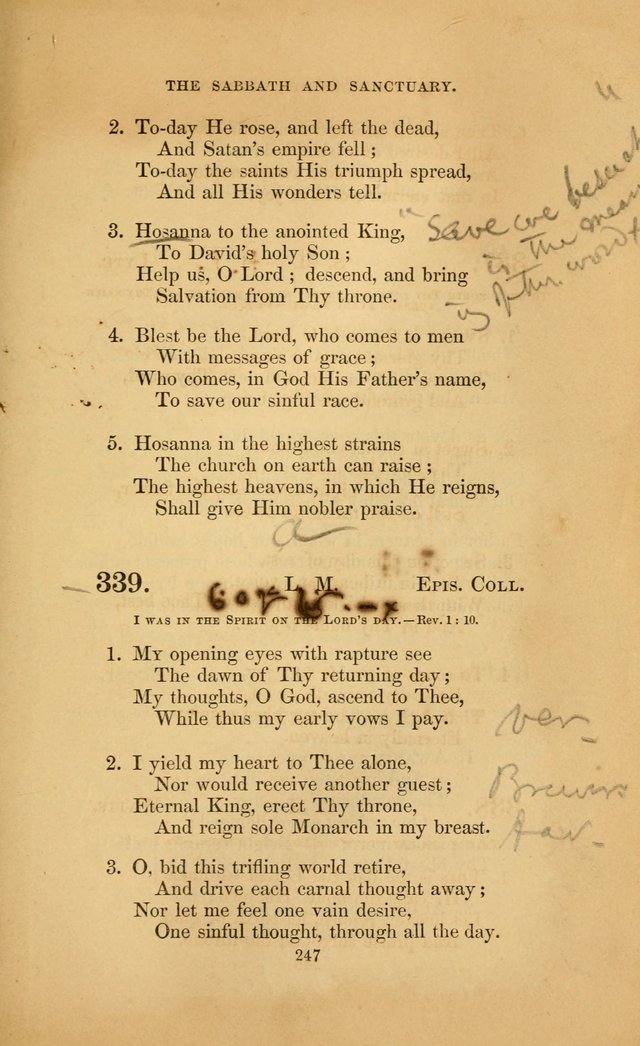 THE SABBATH AND SANCTUARY.
2. To-day He rose, and left the dead,
And Satan's empire fell ;
To-day the saints His triumph spread,
And all His wonders tell.
3. Hosanna to the anointed King,
To David's holy Son ;
Help us, O Lord ; descend, and bring
Salvation from Thy throne.
"Save we beseech"
is the mean-
ing of the word
4. Blest be the Lord, who comes to men
With messages of grace ;
Who comes, in God His Father's name,
To save our sinful race.
5. Hosanna in the highest strains
The church on earth can raise ;
The highest heavens, in which He reigns,
Shall give Him nobler praise.
a
339. L. M. Epis. Coll.
I was in the Spirit on the Lord's day.—Rev. 1 : 10.
1. My opening eyes with rapture see
The dawn of Thy returning day ;
My thoughts, O God, ascend to Thee,
While thus my early vows I pay.
2. I yield my heart to Thee alone,
Nor would receive another guest ;
Eternal King, erect Thy throne,
And reign sole Monarch in my breast.
3. O, bid this trifling world retire,
And drive each carnal thought away ;
Nor let me feel one vain desire,
One sinful thought, through all the day.
247